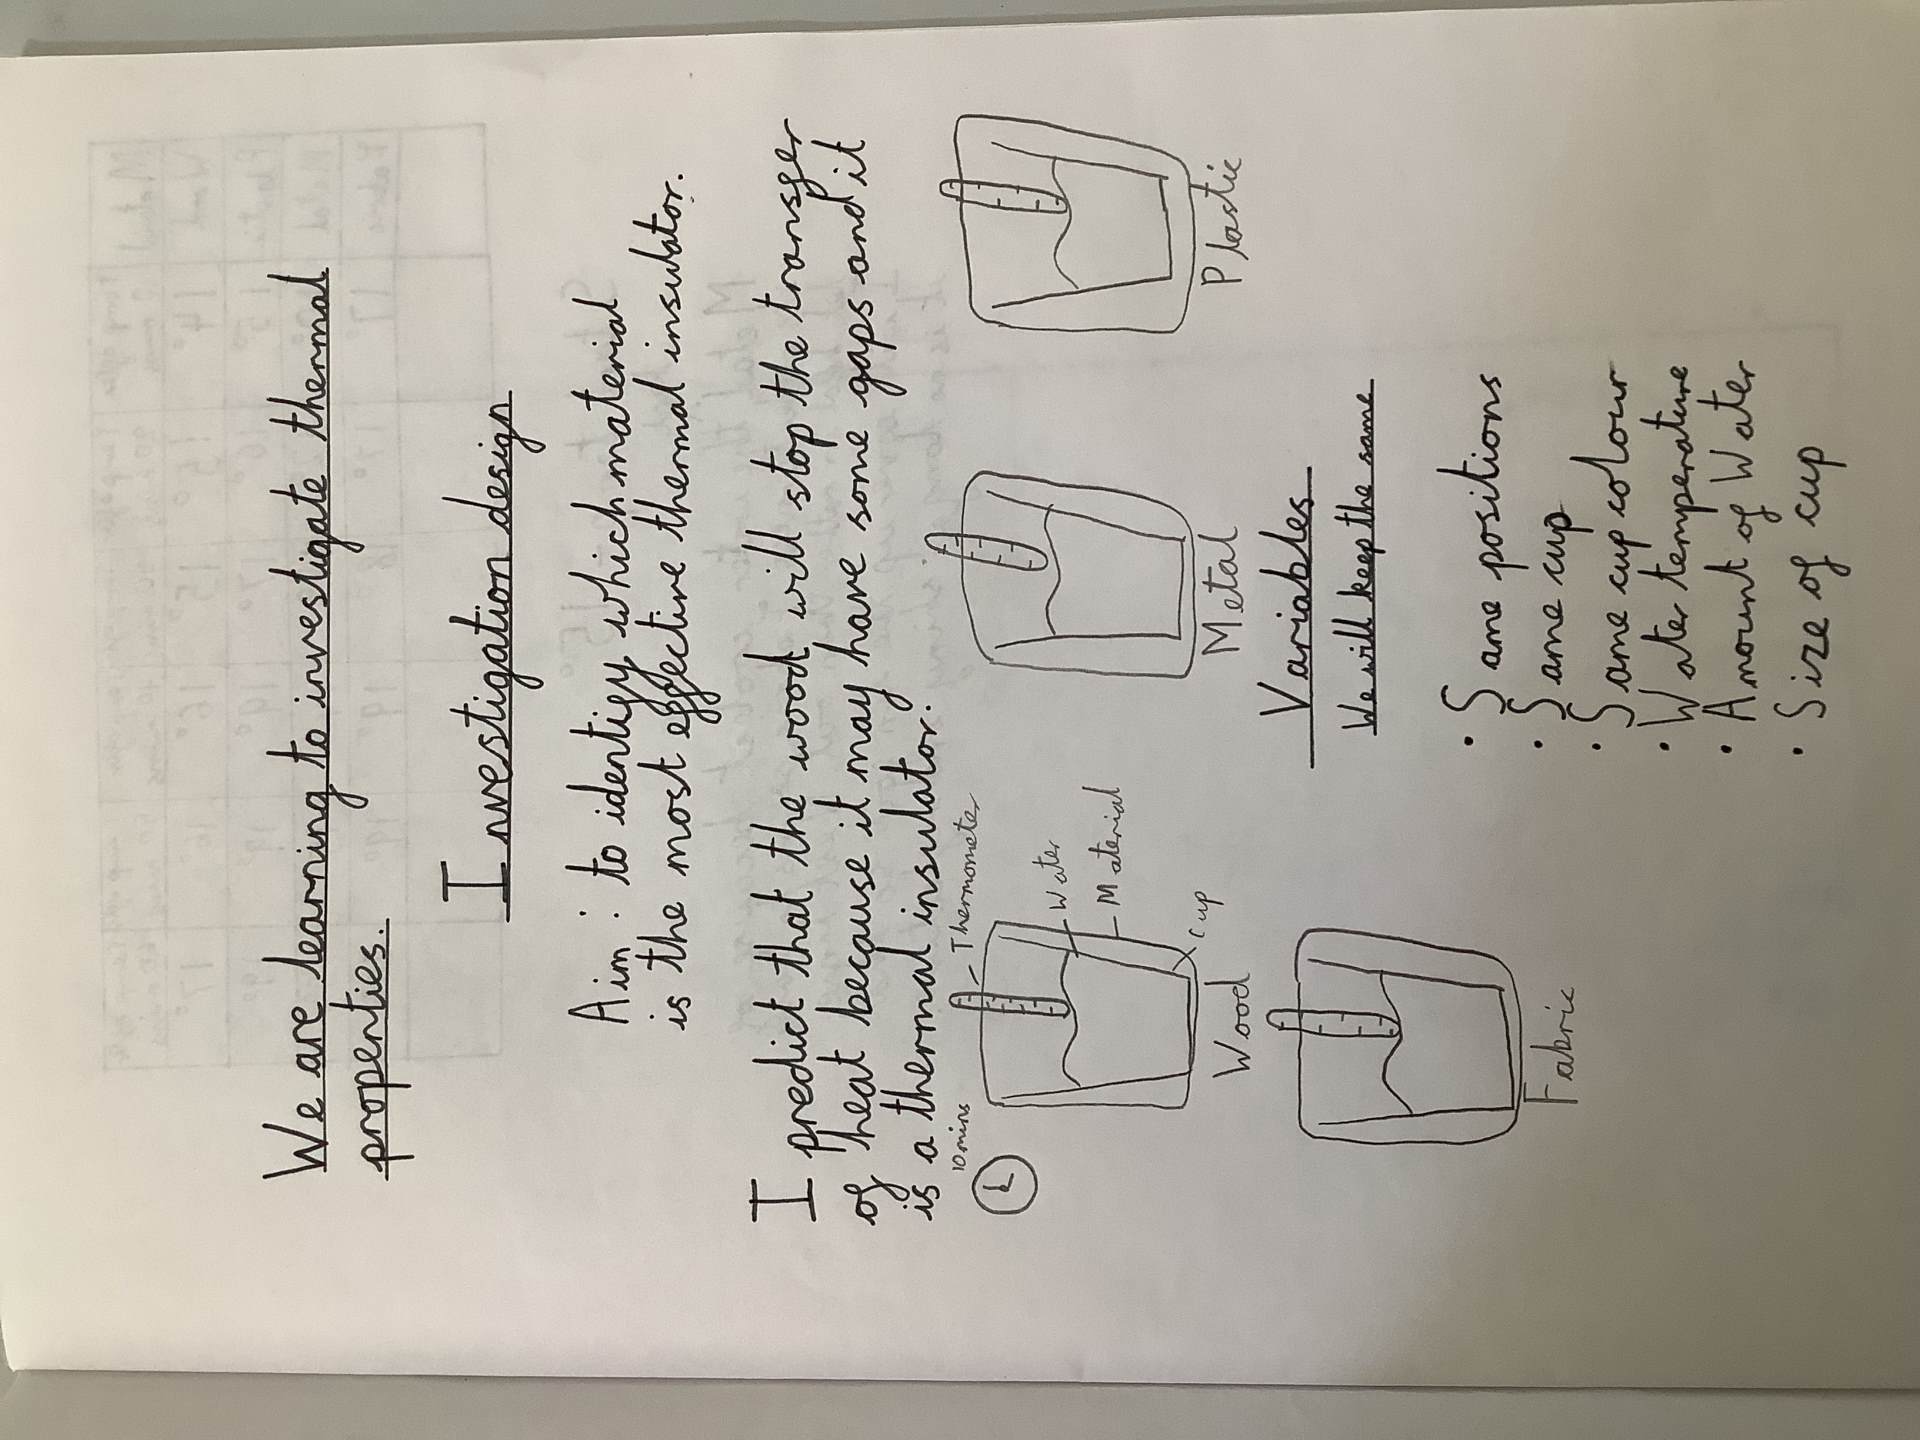 We are learning to investigate thermal
properties.
Investigation design
Aim: to identify which material
is the most effective thermal insulator.
I predict that the wood will stop the transfer
of heat because it may have some gaps and it
is a thermal insulator.
10 mins
Thermometer
Water
Material
cup
Wood
Metal
Plastic
Fabric
Variables
We will keep the same
• Same positions
• Same cup
• Same cup colour
• Water temperature
• Amount of Water
• Size of cup